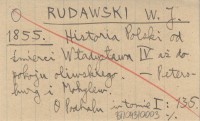 O RUDAWSKI W. J.
1855. Historia Polski od
śmierci Władysława IV aż do
pokoju oliwskiego. — Peters-
burg i Mohylew.
O Podhalu w tomie I: 135.